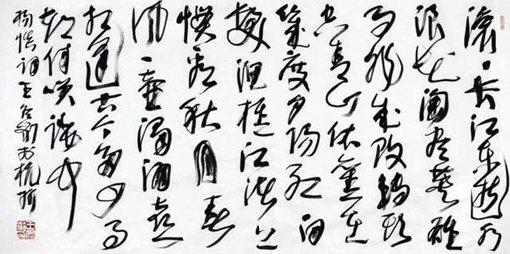 滚滚长江东逝水
浪花淘尽英雄
是非成败转头
空青山依旧在
几度夕阳红白
发渔樵江渚上
惯看秋月春
风一壶浊酒喜
相逢古今多少事
都付笑谈中
杨慎词